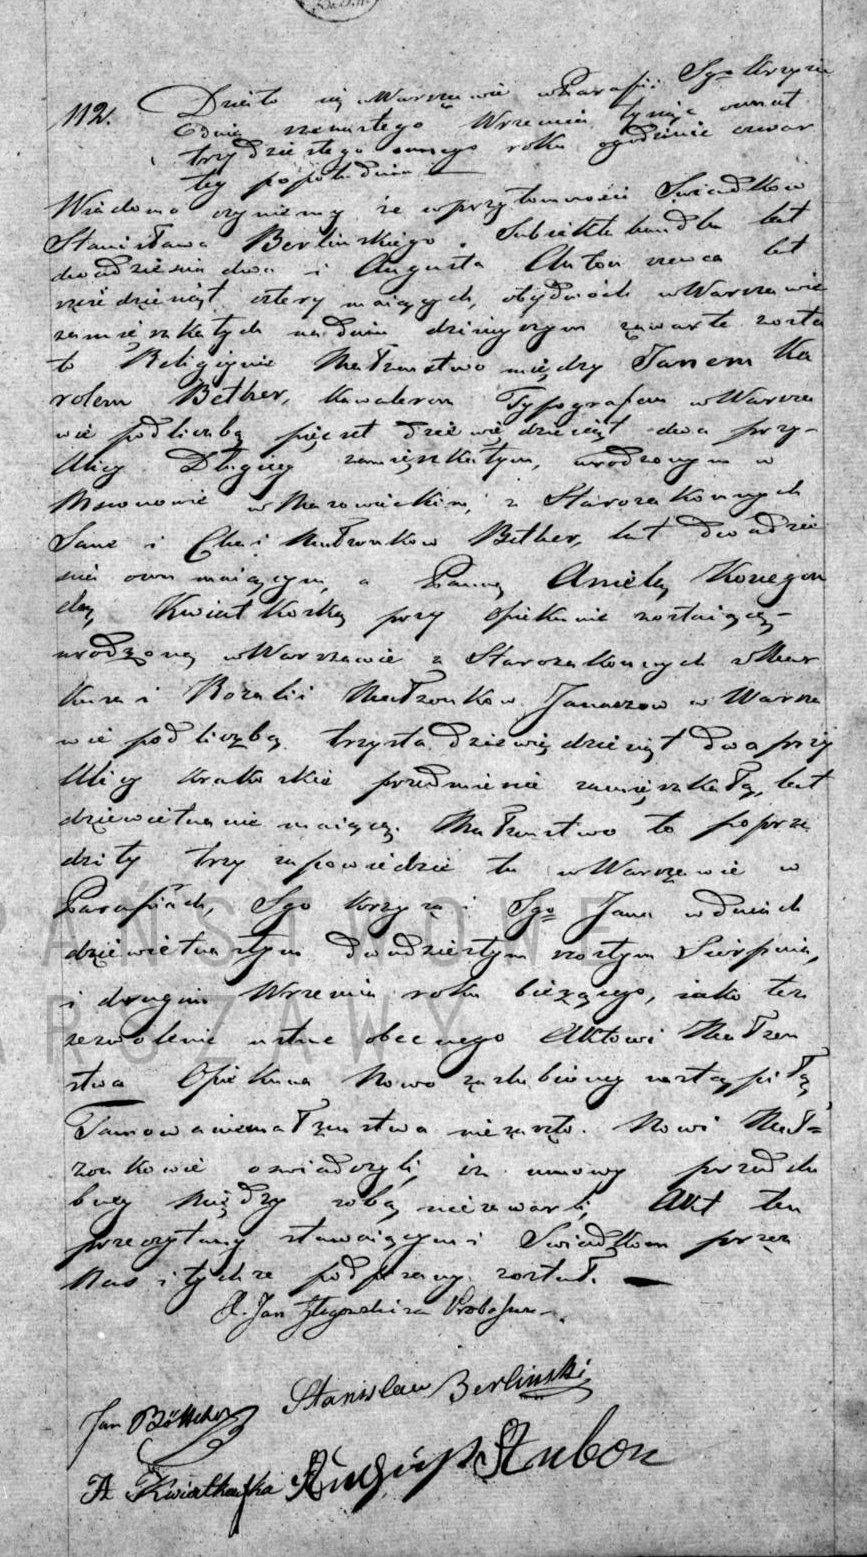 112. Działo się w Warszawie w Parafii Sgo Krzyża
dnia szesnastego Wrzesnia tysiąc osmset
trzydziestego osmego roku o godzinie czwar
tey popołudniu
Wiadomo czyniemy że w przytomności Swiadków
Stanisława Berlińskiego Subiekta handlu lat
dwadziescia dwa i Augusta szewca lat
sześdziesiąt cztery maiących, obydwóch w Warszawie
zamieszkałych na dniu dzisieyszym zawarte zosta
ło Religiynie Małżenstwo między Janem Ka
rolem Bether, kawalerem Typografem w Warsza
wie pod liczbą pięcset dziewięcdziesiąt dwa przy
Ulicy Długiey zamieszkałym, urodzonym w
w Mazowieckim, z Starozakonnych
i Chai Małżonków Bether, lat dwadzie
scia osm maiącym, a Panną Anielą Konegon
dą Kwiatkoską przy Opiekunie zostaiącą
urodzoną w Warszawie z Starozakonnych z Mar
kusa i Rozalii Małżonków w Warsza
wie pod liczbą trzysta dziewięcdziesiąt dwa przy
Ulicy Krakoskie przedmiescie zamięszkałą, lat
dziewietnascie maiącą. Małżenstwo to poprze
dziły trzy zapowiedzie tu w Warszawie w
Parafiach, Sgo Krzyża i Sgo Jana w dniach
dziewietnastym dwudziestym szostym Sierpnia,
i drugim Wrzesnia roku bieżącego, iako też
zezwolenie ustne obecnego Aktowi Małżen
stwa Opiekuna Nowo zaslubioney nastąpiło
Tamowanie małżenstwa nie zaszło. Nowi Mał=
żonkowie oswiadczyli, iż umowy przedslu
bney między sobą nie zawarli, Akt ten
przeczytany stawaiącym i Swiadkom przez
Nas i tychże podpisany został.
X. Jan
Jan Böttcher Stanislaw Berlinski
A Kwiatkoska August
PAŃSTWOWE
WARSZAWY